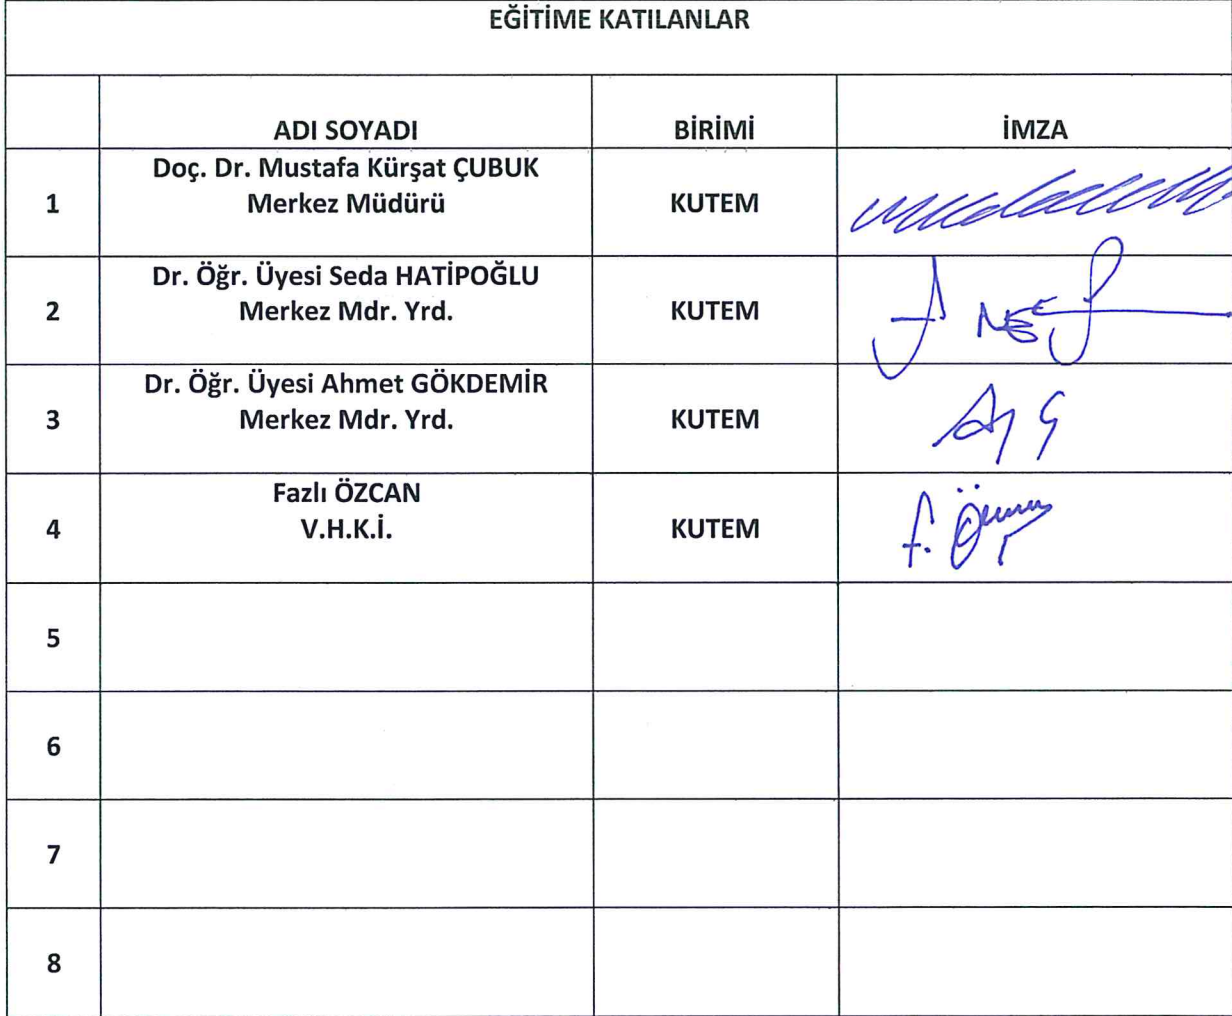 EĞİTİME KATILANLAR
ADI SOYADI BİRİMİ İMZA
Doç. Dr. Mustafa Kürşat ÇUBUK
1 Merkez Müdürü KUTEM
Dr. Öğr. Üyesi Seda HATİPOĞLU
2 Merkez Mdr. Yrd. KUTEM
Dr. Öğr. Üyesi Ahmet GÖKDEMİR
3 Merkez Mdr. Yrd. KUTEM
Fazlı ÖZCAN
4 V.H.K.İ. KUTEM
5
6
7
8